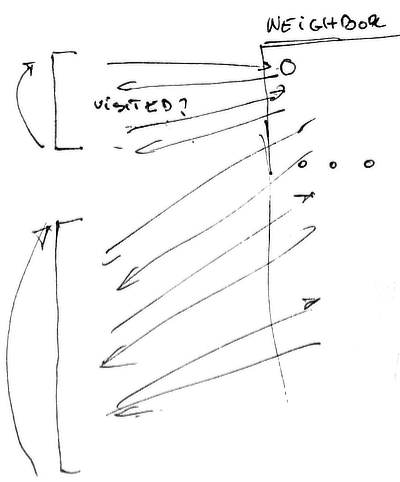 NEIGHBOR
VISITED?